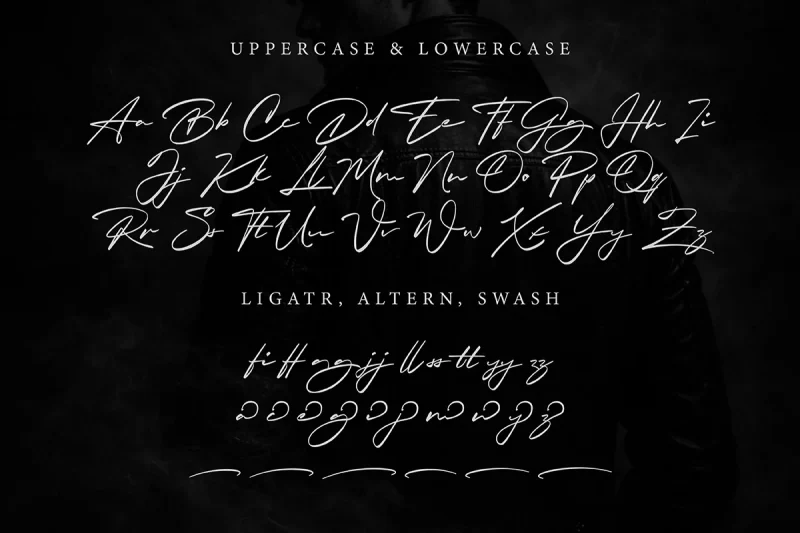 UPPERCASE & LOWERCASE
Aa Bb Cc Dd Ee Ff Gg Hh Ii
Jj Kk Ll Mm Nn Oo Pp Qq
Rr Ss Tt Uu Vv Ww Xx Yy Zz
LIGATR, ALTERN, SWASH
fi ff gg jj ll ss tt yy zz
a c e g i j m n y z